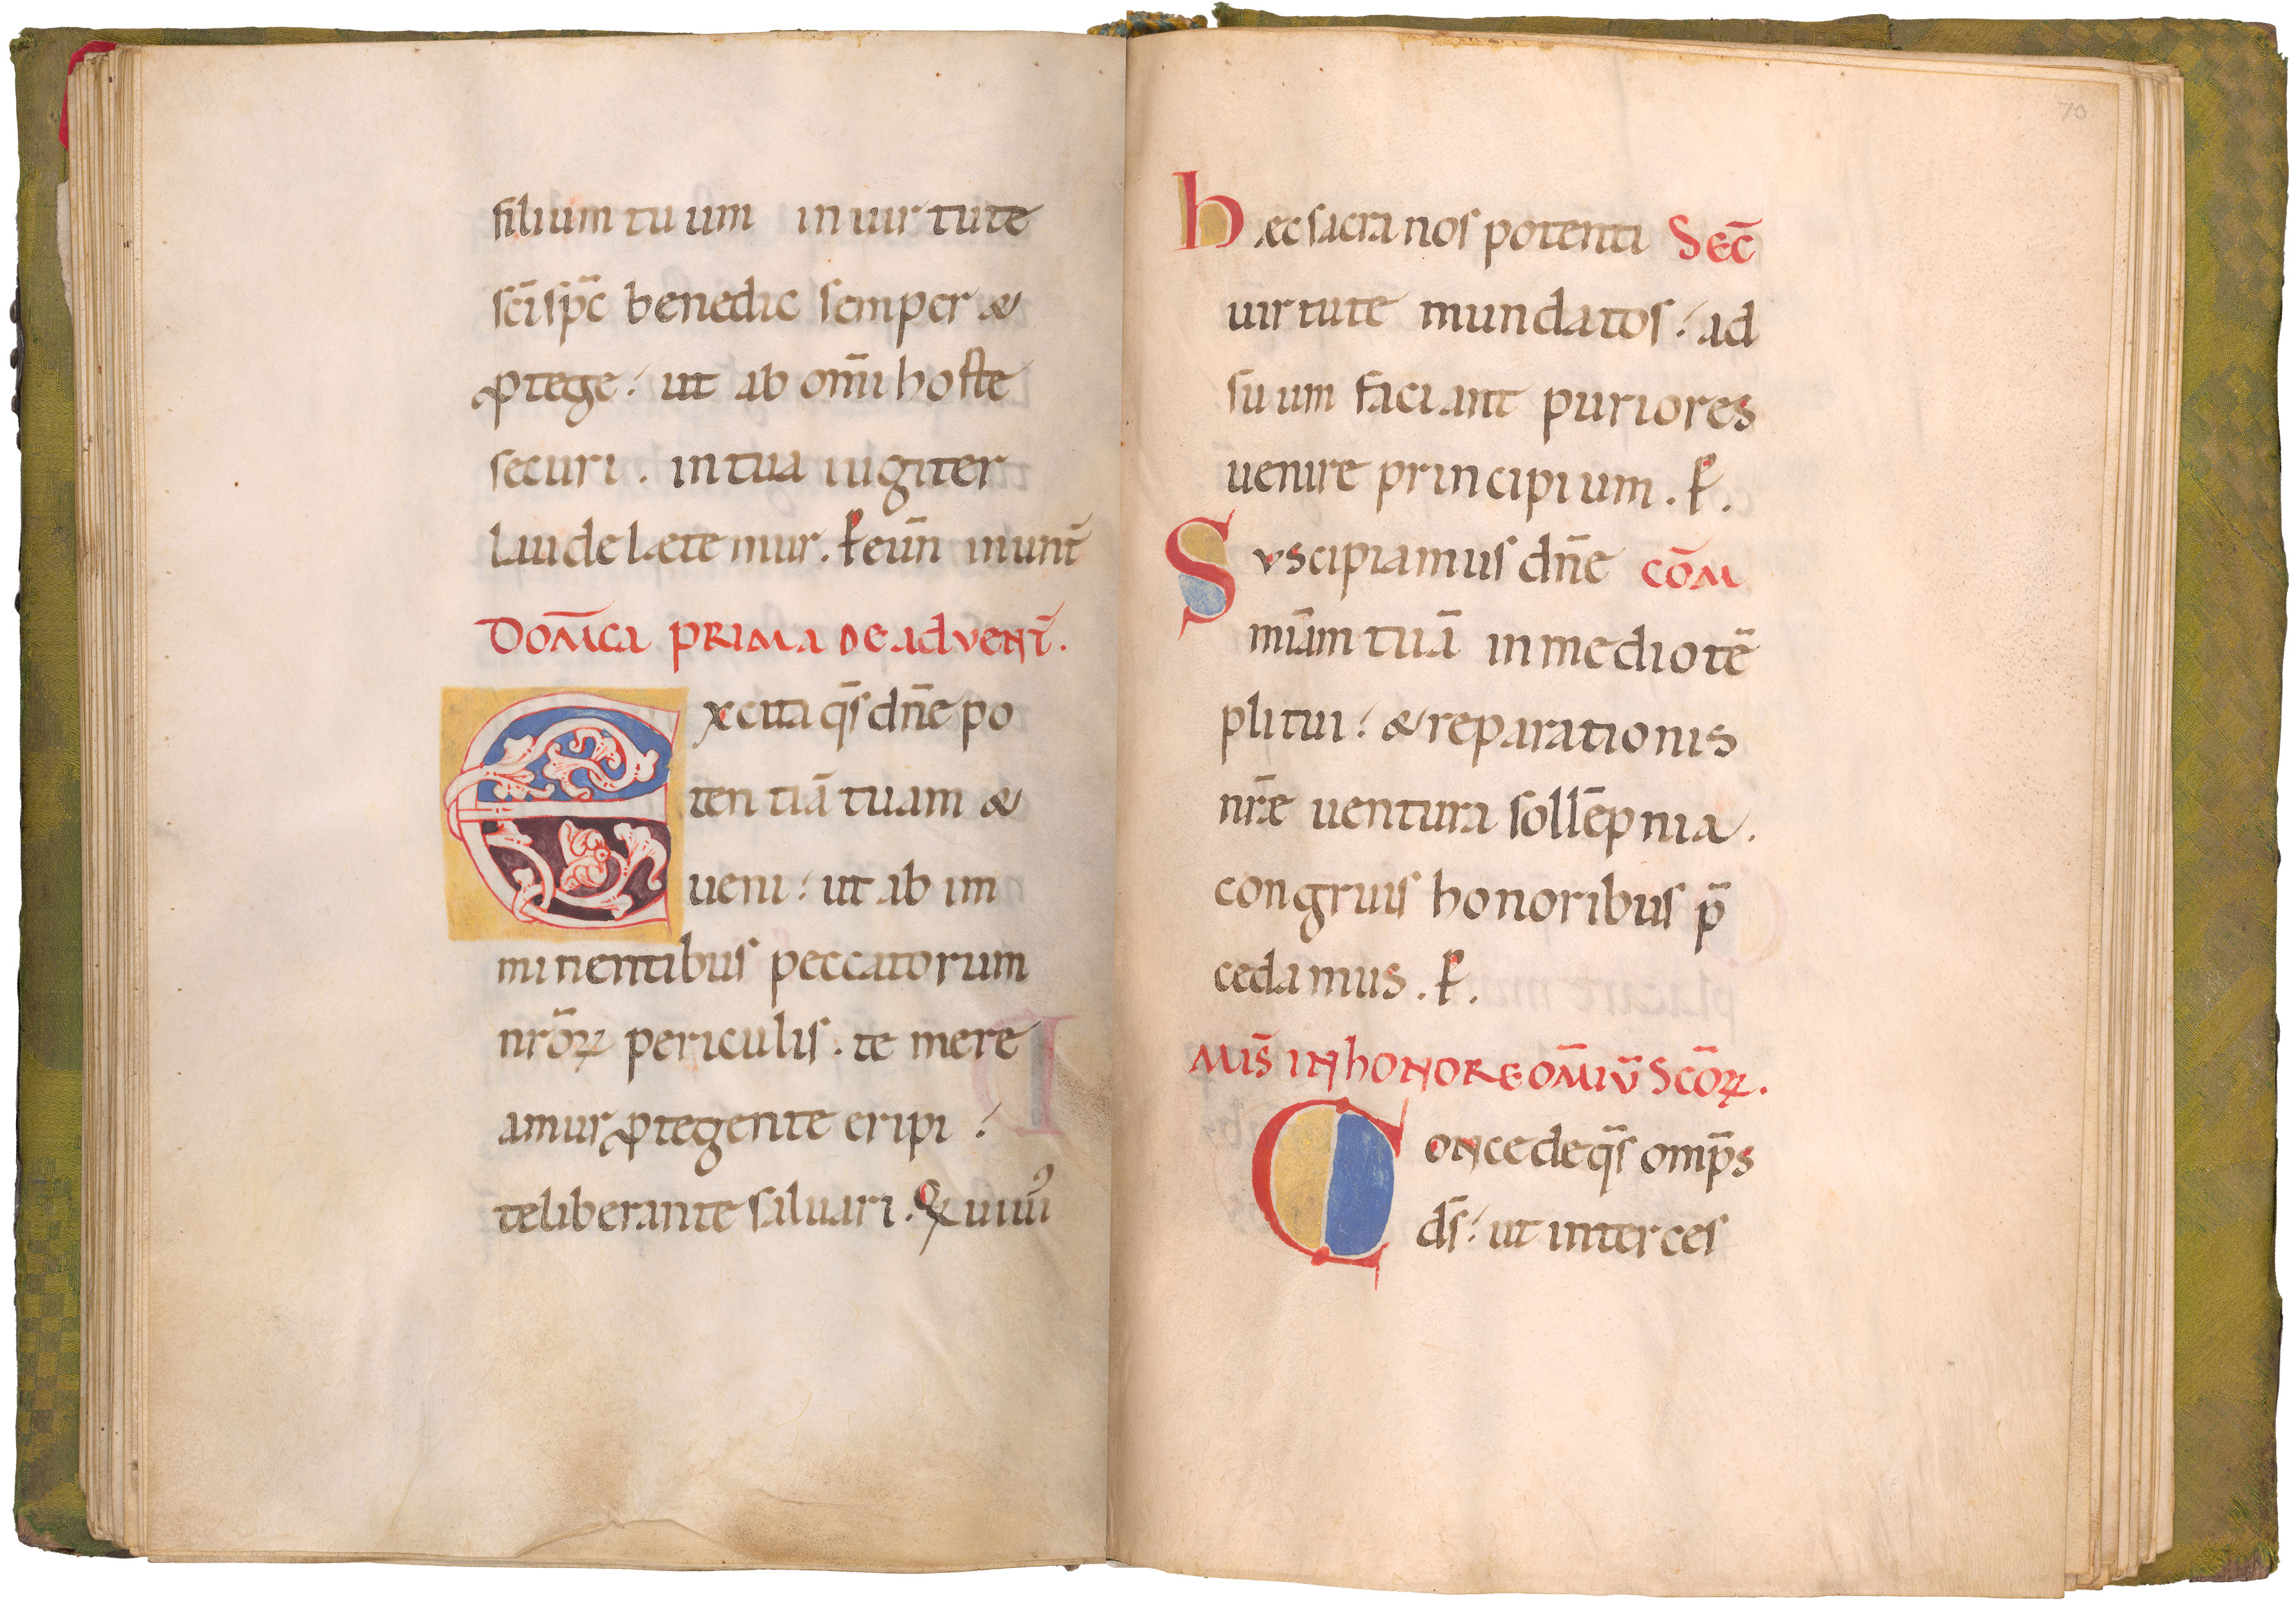 filium tuum in uirtute
sc̄i sp̄c benedic semper &
ꝓtege. ut ab om̄i hoste
securi. in tua iugiter
laude lætemur. ꝑ eun̄ in unt̄
DOM̄CA PRIMA DE ADVENT̄.
Excita q̄s dn̄e po
tentiā tuam &
ueni. ut ab im
minentibus peccatorum
nr̄oꝝ periculis. te mere
amur ꝓtegente eripi.
te liberante saluari. Q uiuꝰ
70
hæc sacra nos potenti SEC̄
uirtute mundatos. ad
suum faciant puriores
uenire principium. ꝑ.
SVscipiamus dn̄e CŌM
mīam tuā in medio tē
pli tui. & reparationis
nr̄æ uentura sollēpnia.
congruis honoribus p̄
cedamus. ꝑ.
MIS̄ IN hONORE OM̄IŪ SC̄OꝜ.
CONcede q̄s omp̄s
ds̄. ut interces